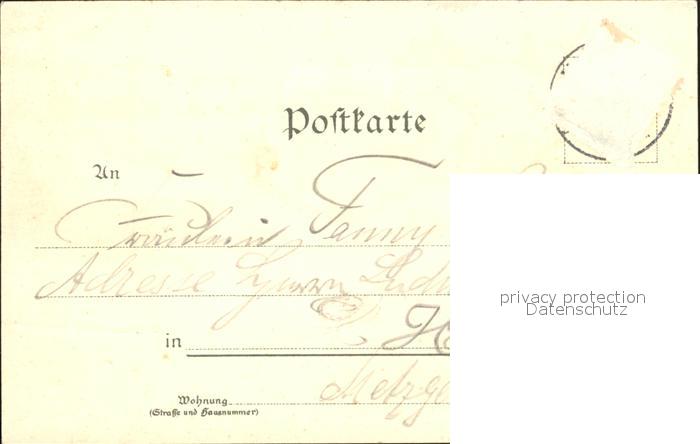 Postkarte
An
Fräulein Fanny
Adresse Herrn
in
Wohnung
(Straße und Hausnummer)
privacy protection
Datenschutz